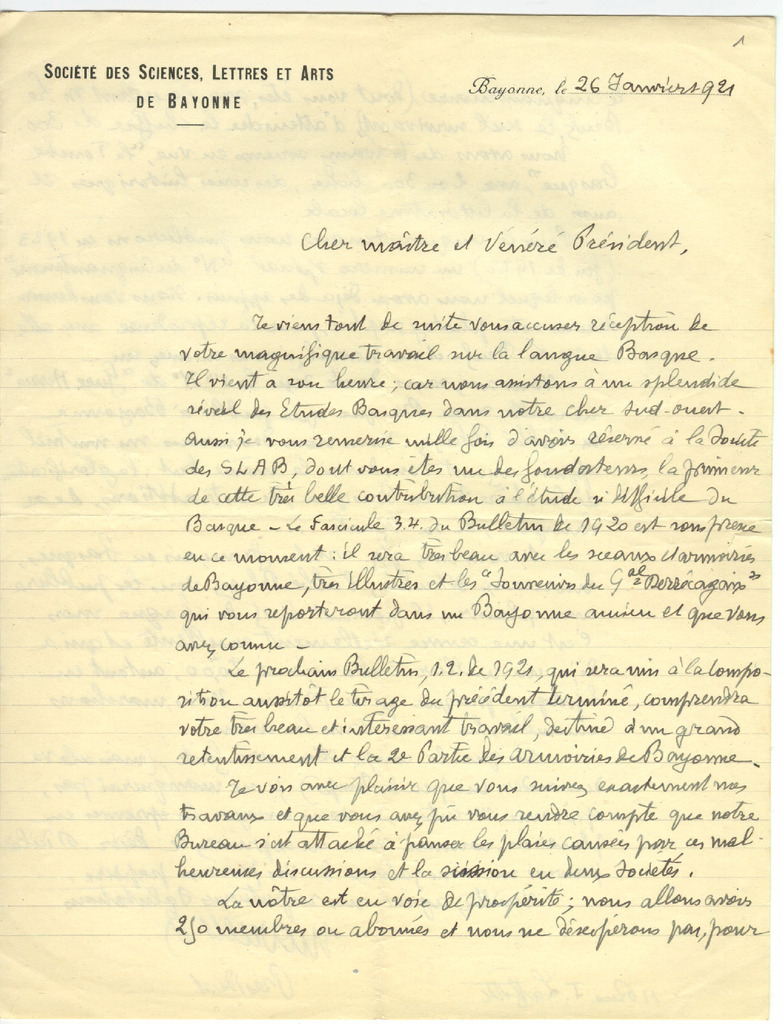 1
SOCIÉTÉ DES SCIENCES, LETTRES ET ARTS
DE BAYONNE
Bayonne, le 26 Janvier 1921
Cher maître et Vénéré Président,
Je viens tout de suite vous accuser réception de
votre magnifique travail sur la langue Basque.
Il vient a son heure ; car nous assistons à un splendide
réveil des Etudes Basques dans notre cher sud-ouest -
aussi je vous remercie mille fois d'avoir réservé à la Société
des SLAB, dont vous êtes un des fondateurs, la primeur
de cette très belle contribution à l'étude si difficile du
Basque - Le Fascicule 3.4. du Bulletin de 1920 est sous presse
en ce moment : il sera très beau avec les sceaux et armoiries
de Bayonne, très illustres et les "Souvenirs du Gal Derrécagaix"
qui vous reporteront dans un Bayonne ancien et que vous
avez connu -
Le prochain Bulletin, 1.2. de 1921, qui sera mis à la compo-
sition aussitôt le tirage du précédent terminé, comprendra
votre très beau et intéressant travail, destiné à un grand
retentissement et la 2e Partie des armoiries de Bayonne -
Je vois avec plaisir que vous suivez exactement nos
travaux et que vous avez pu vous rendre compte que notre
Bureau s'est attaché à panser les plaies causées par ces mal-
heureuses discussions et la scission en deux Sociétés.
La nôtre est en voie de prospérité ; nous allons avoir
250 membres ou abonnés et nous ne désespérons pas, pour